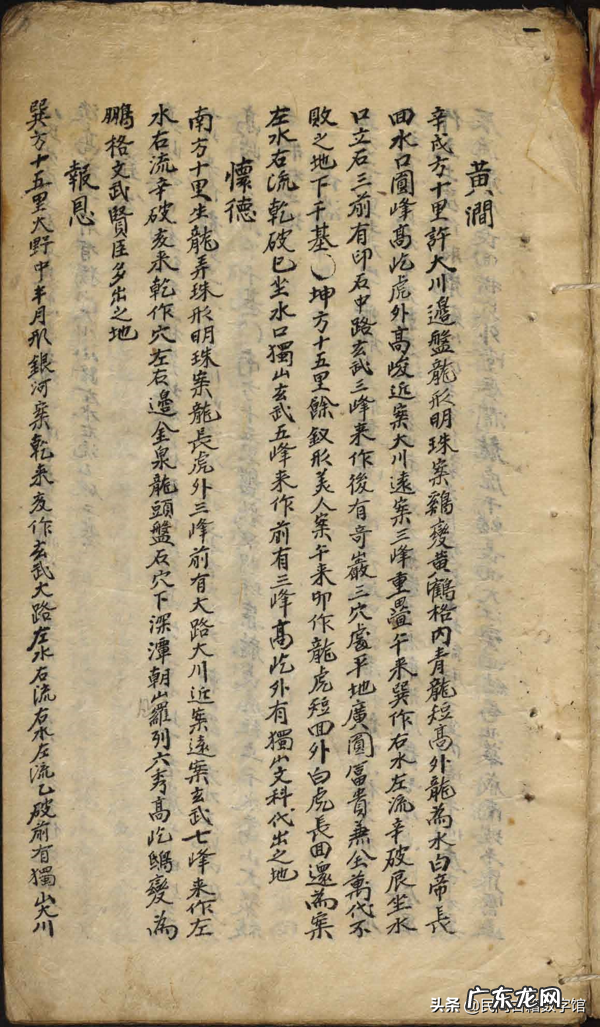 黃澗
辛戌方十里許大川邊盤龍形明珠案鷄變黃鶴格內青龍短高外龍為水白帝長
回水口圓峰高屹虎外高峻近案大川遠案三峰重疊午来巽作右水左流辛破辰坐水
口立石三前有印石中路玄武三峰来作後有奇巖三穴處平地廣圓富貴兼全萬代不
敗之地下千基〇坤方十五里餘釵形美人案午来卯作龍虎短回外白虎長回還為案
左水右流乾破巳坐水口獨山玄武五峰来作前有三峰高屹外有獨山文科代出之地
懷德
南方十里生龍弄珠形明珠案龍長虎外三峰前有大路大川近案遠案玄武七峰来作左
水右流辛破亥来乾作穴左右邊金泉龍頭盤石穴下深潭朝山羅列六秀高屹鷄變為
鵬格文武賢臣多出之地
報恩
巽方十五里大野中半月形銀河案乾来亥作玄武大路左水右流右水左流乙破前有獨山大川
头条 @民间古籍数字馆
广东龙网